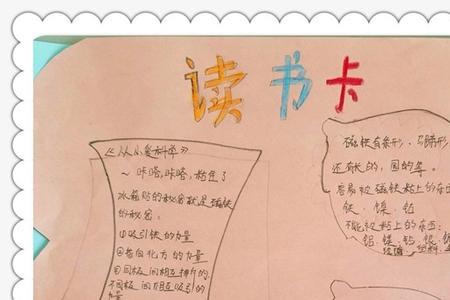 读书卡
《从小爱科学》
～咔嗒,咔嗒,粘住了
冰箱贴的秘密就是磁铁
的秘密:
①吸引铁的力量
②指向北方的力量
③同极间相互排斥的
不同极间相互吸引的
力量
磁铁有条形、马蹄形
还有长的,圆的等。
容易被磁铁粘上的东西
铁、镍、钴
不能被粘上的东西:
铝、镁、铅、银、铜
玻璃、塑料